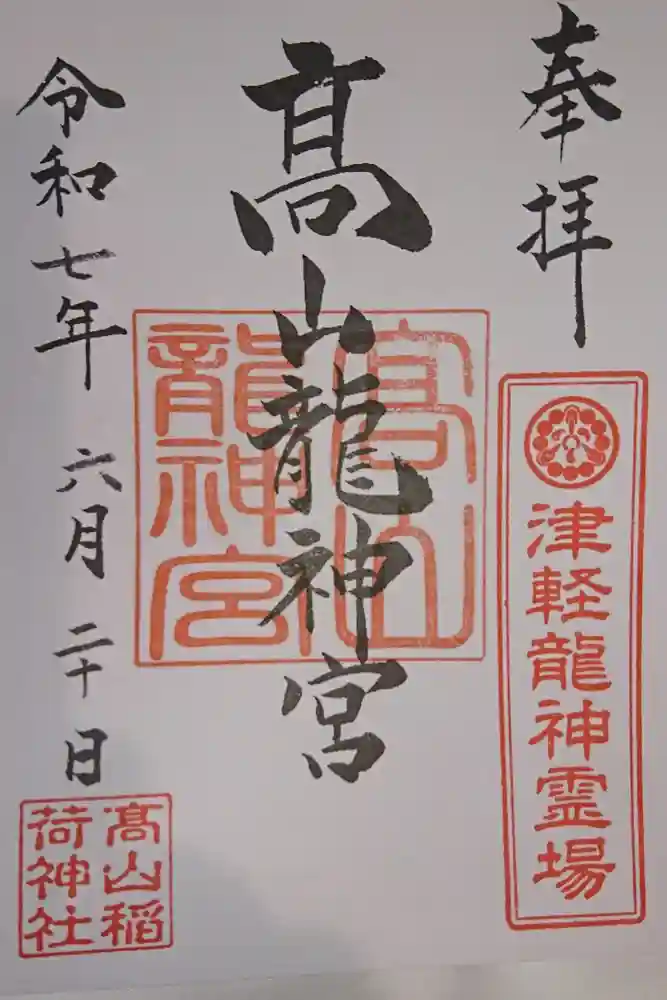 奉拝
津軽龍神霊場
髙山龍神宮
髙山
龍神宮
令和七年 六月 二十日
髙山稲
荷神社